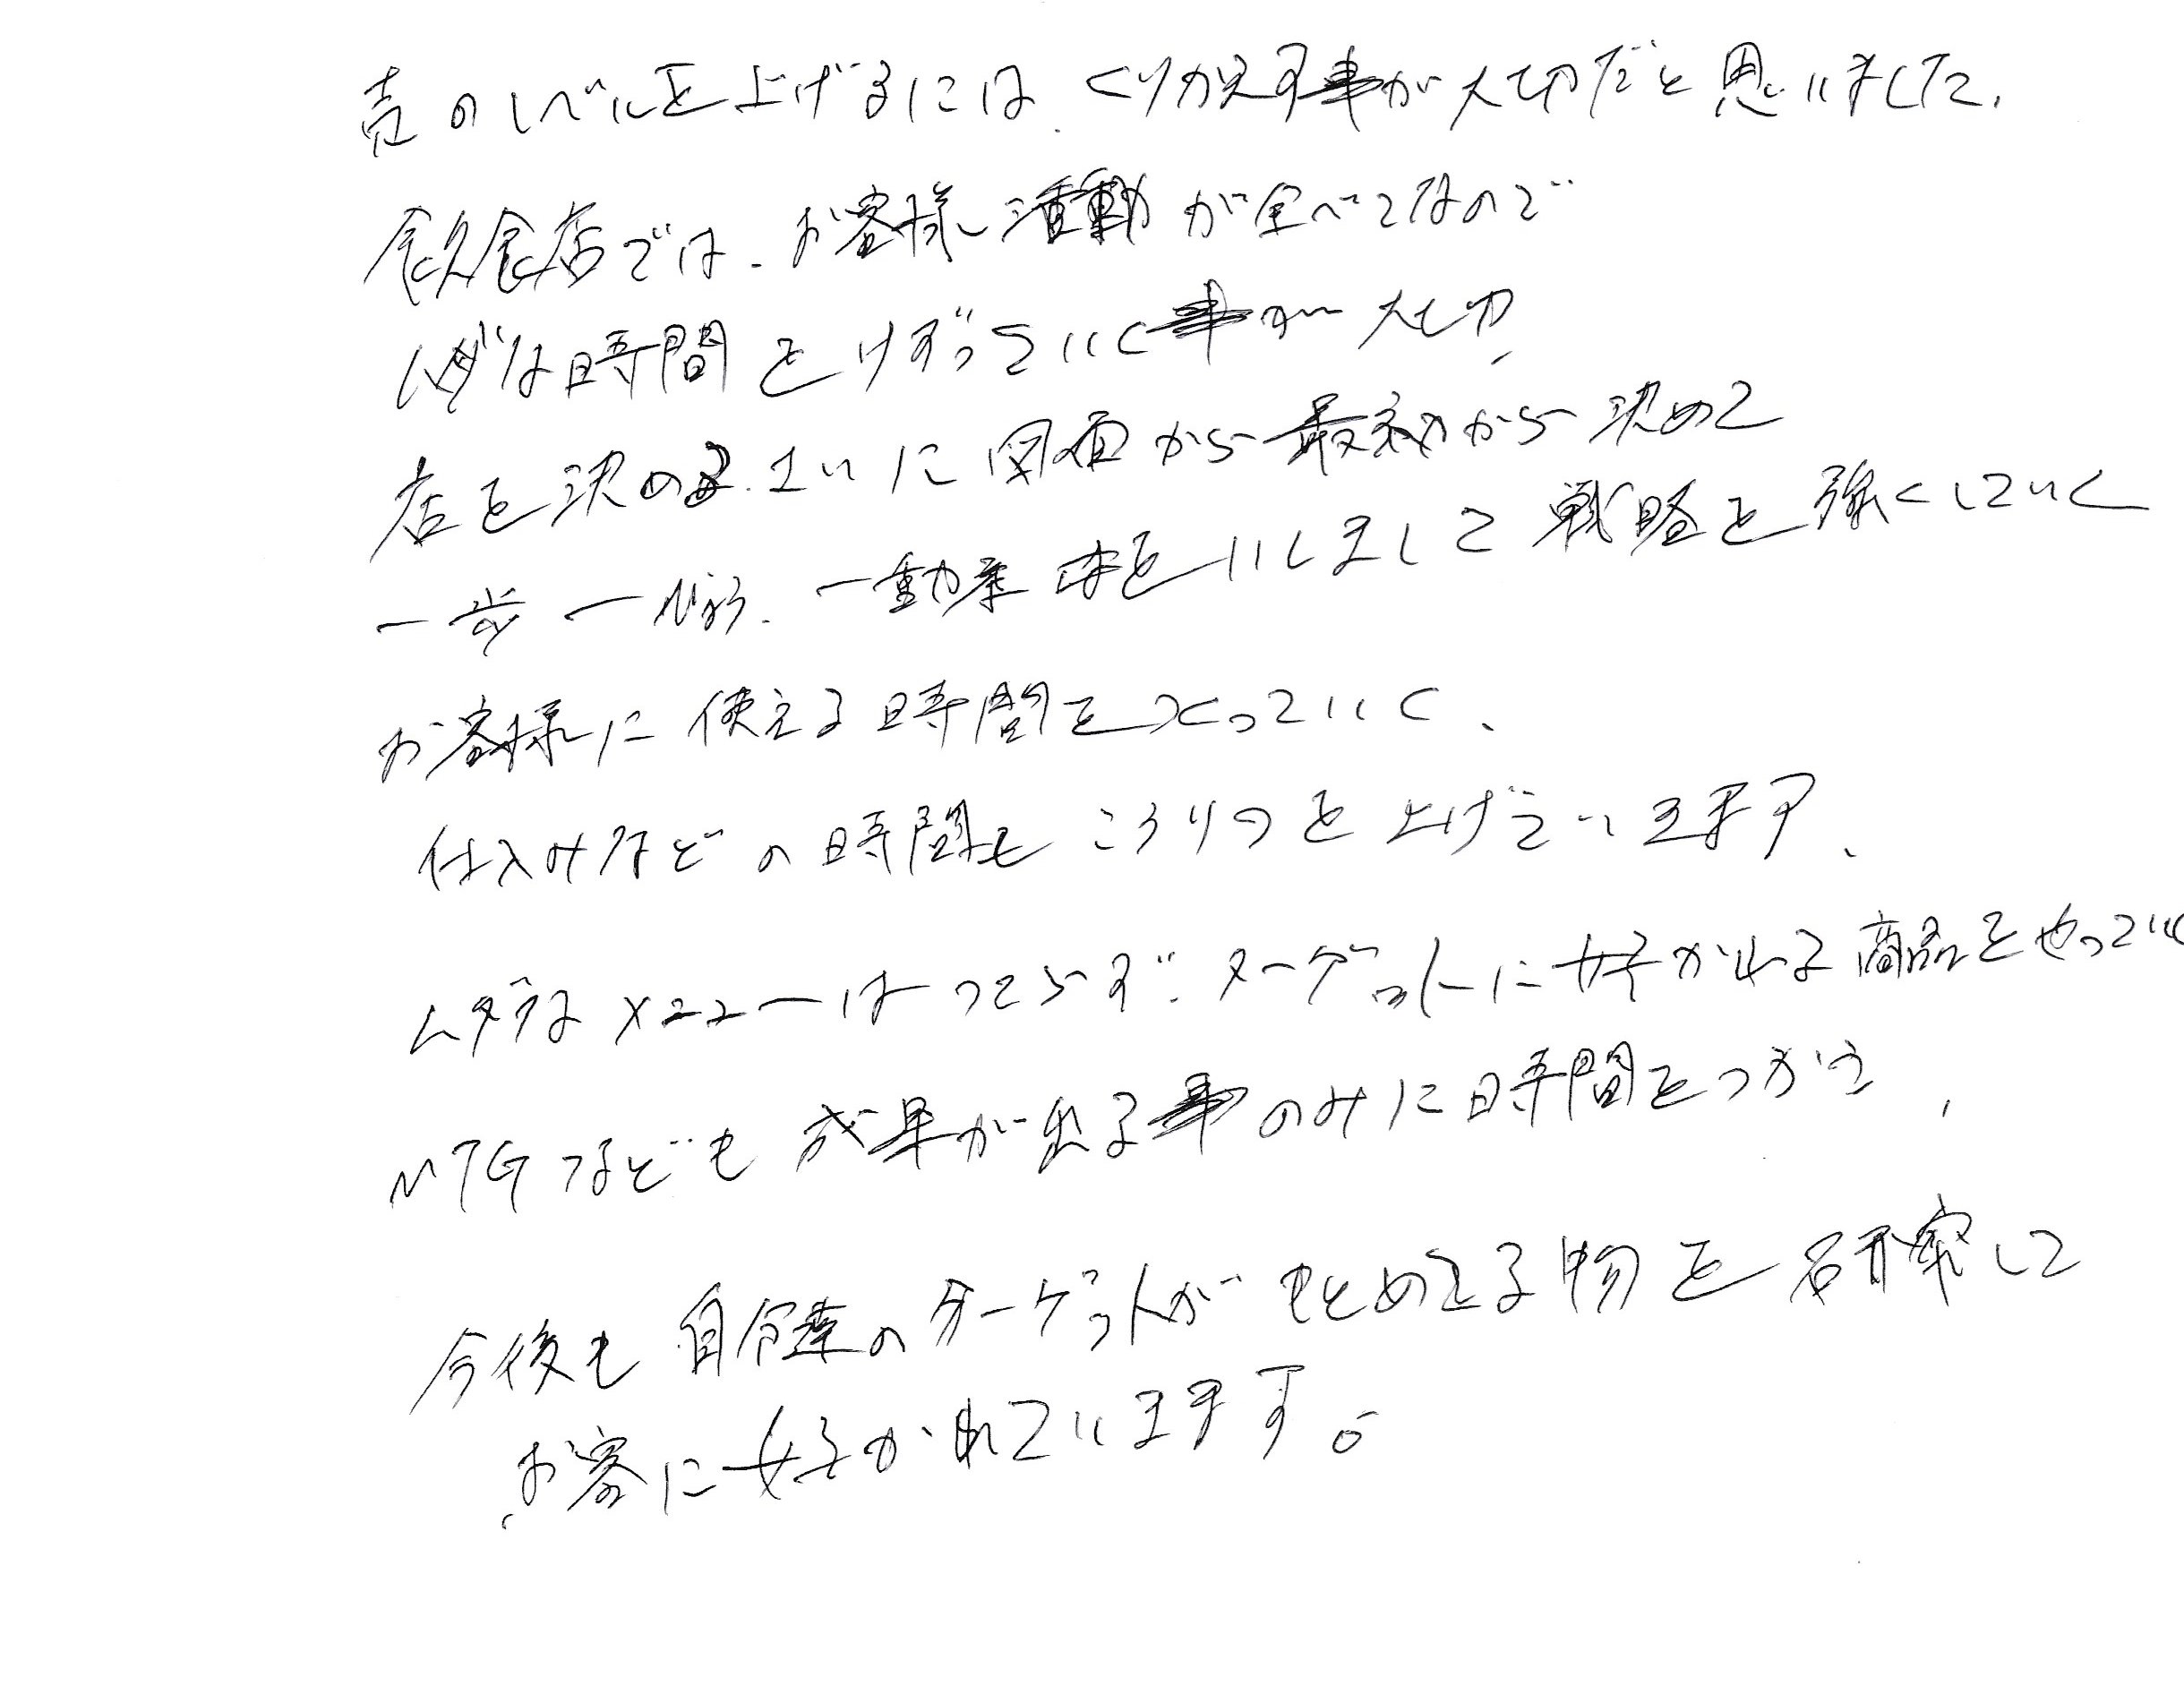 売のレベルを上げるには、くりかえす事が大切だと思いました、
飲食店では、お客様活動が全べてなので
ムダな時間をけずっていく事が大切、
店を決める、さいに図面から最初から決めて
一歩一 、一動 をいしまして戦略を強くしていく
お客様に使える時間をつくっていく、
仕入みなどの時間もこうりつを上げていきます、
ムダなメニューはつくらず、ターゲットに好かれる商品をやってい
MTGなども成果が出る事のみに時間をつかう、
今後も自分達のターゲットがもとめてる物を研究して
お客に好かれていきます。